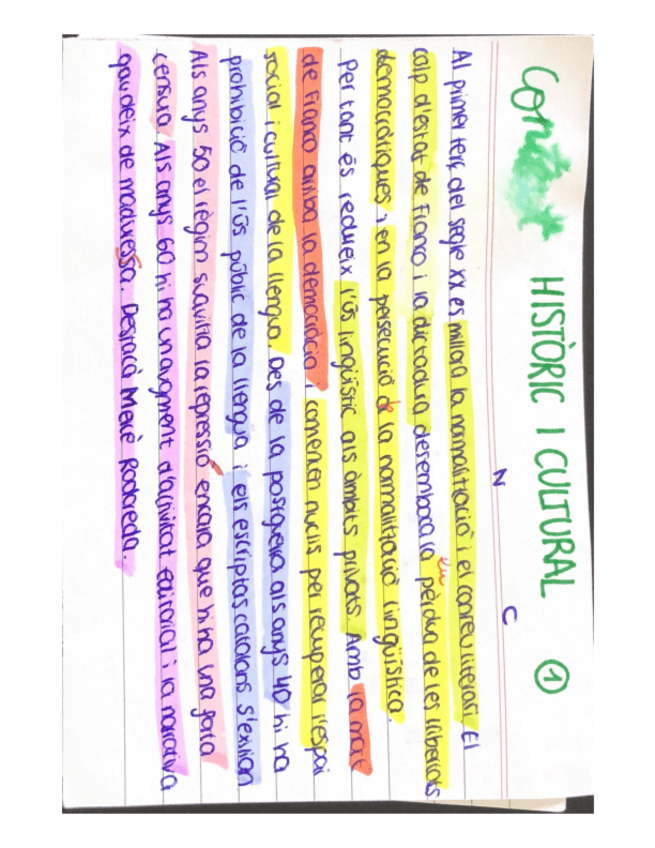 Context HISTÒRIC I CULTURAL ①
N C
Al primer terç del segle XX es millora la normalització i el conreu literari. El
colp d'estat de Franco i la dictadura desemboca en la pèrdua de les llibertats
democràtiques i en la persecució de la normalització lingüística.
Per tant és redueix l'ús lingüístic als àmbits privats. Amb la mort
de Franco arriba la democràcia i comencen nuclis per recuperar l'espai
social i cultural de la llengua. Des de la posguerra als anys 40 hi ha
prohibició de l'ús públic de la llengua i els escriptos catalans s'exilian
Als anys 50 el règim suavitza la repressió encara que hi ha una forta
censura. Als anys 60 hi ha un augment d'activitat editorial i la narrativa
gaudeix de maduressa. Destacà Mercè Rodoreda.